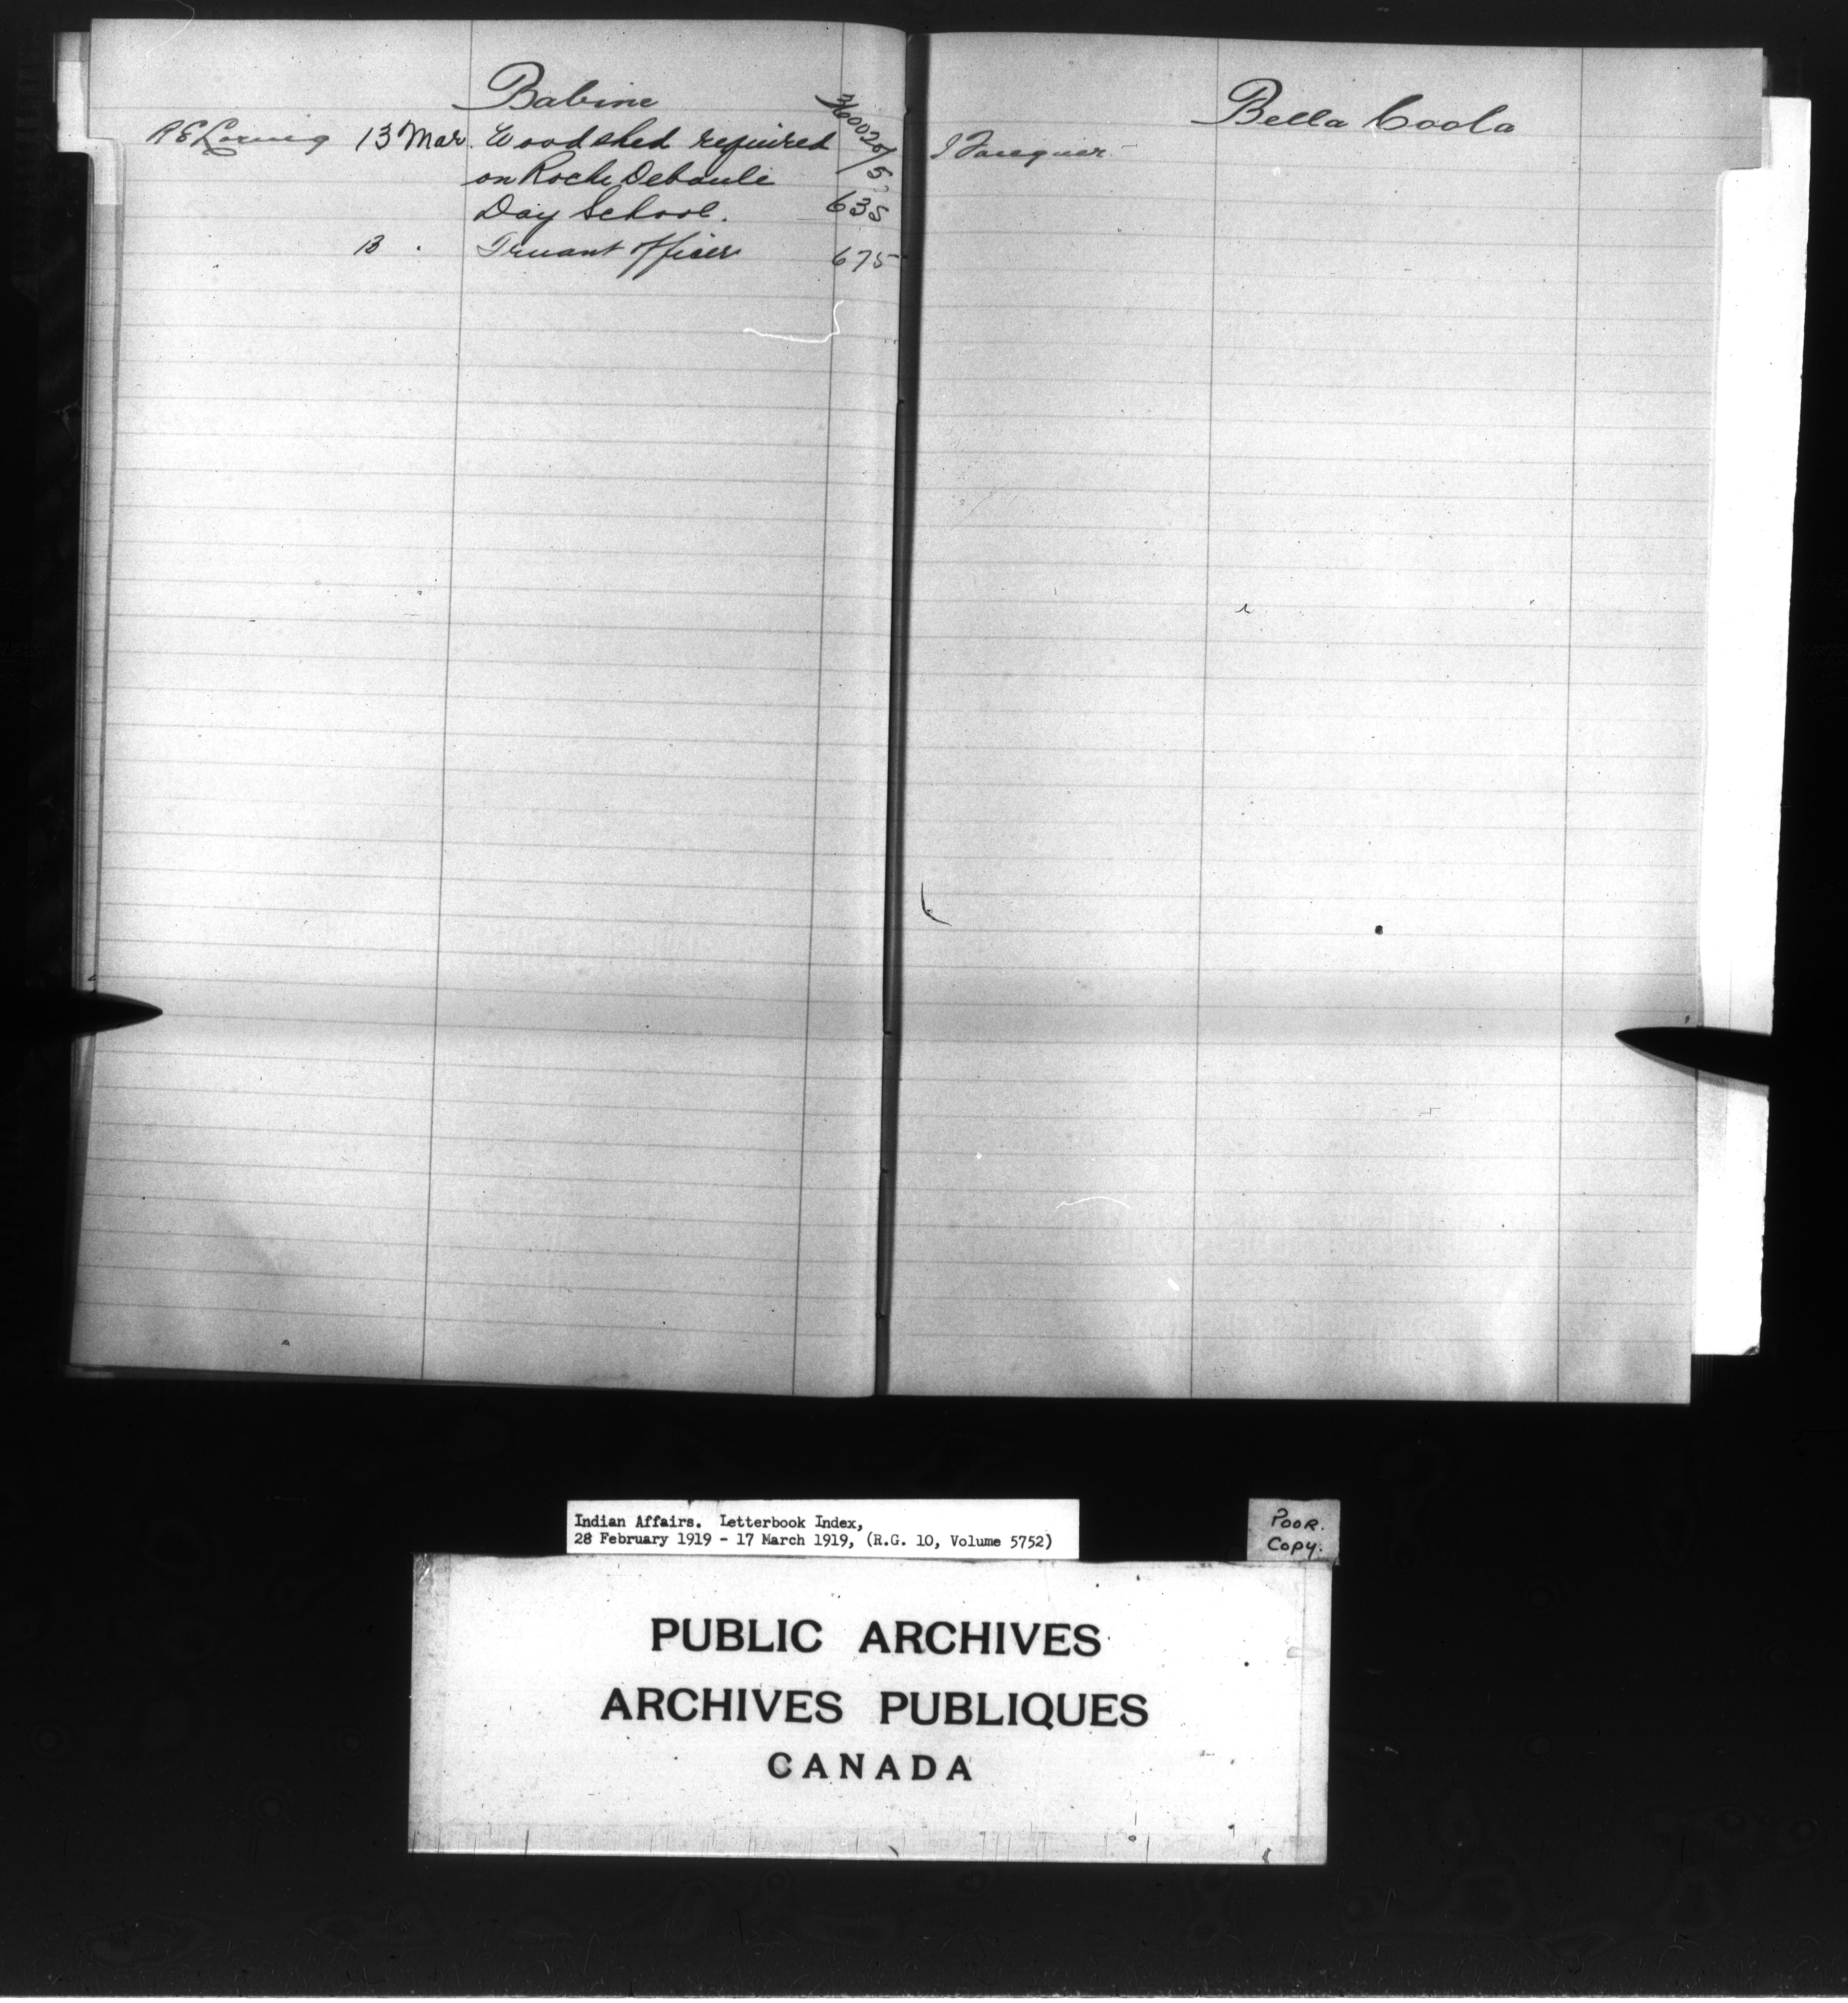 Babine
R E Loring 13 Mar. Woodshed required 36002 6/5
on Roche Deboule
Day School. 635
13 . Truant Officer 675
Bella Coola
I Fougner
Indian Affairs. Letterbook Index,
28 February 1919 - 17 March 1919, (R.G. 10, Volume 5752)
POOR.
COPY.
PUBLIC ARCHIVES
ARCHIVES PUBLIQUES
CANADA